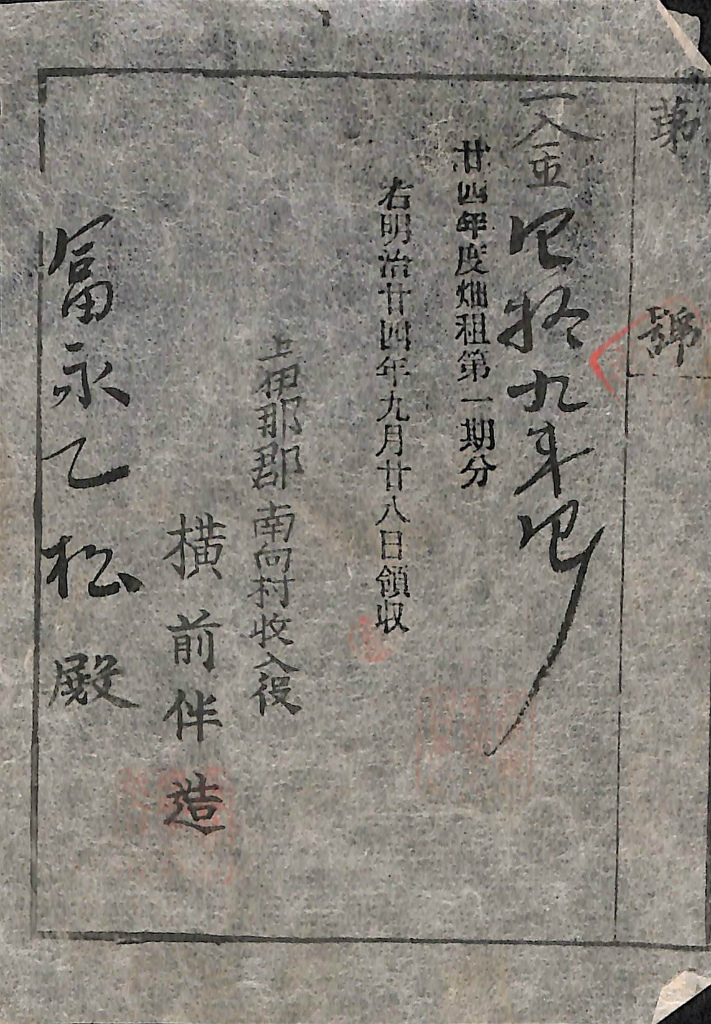 第　號
一金四拾九半四
廿四年度畑租第一期分
右明治廿四年九月廿八日領収
上伊那郡南向村收入役
横前伴造
冨永乙松殿